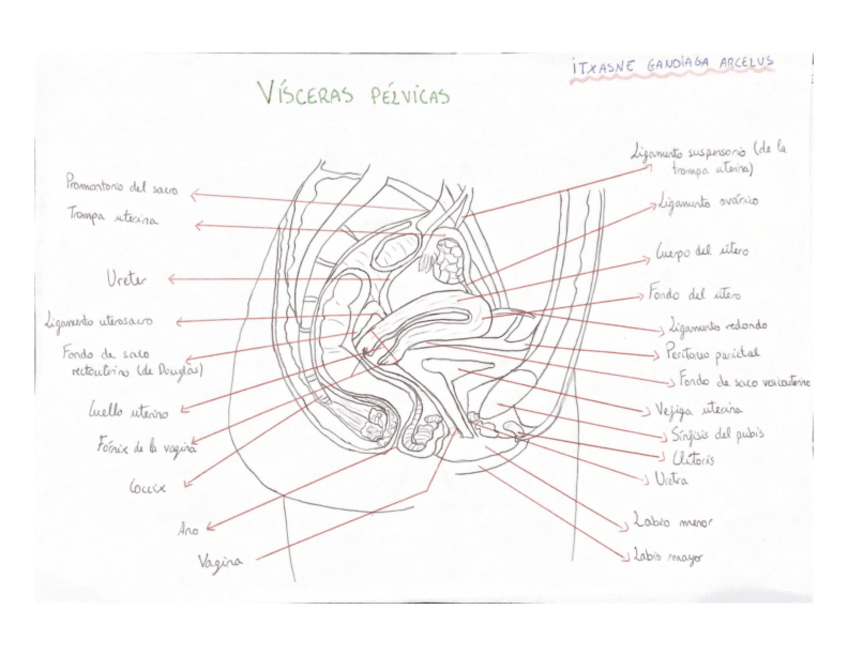 ITXASNE GANDIAGA ARCELUS
VÍSCERAS PÉLVICAS
Promontorio del saco
Trompa uterina
Ureter
Ligamento uterosacro
Fondo de saco
rectouterino (de Douglas)
Cuello uterino
Fórnix de la vagina
Coccix
Ano
Vagina
Ligamento suspensorio (de la
trompa uterina)
Ligamento ovárico
Cuerpo del útero
Fondo del útero
Ligamento redondo
Peritoneo parietal
Fondo de saco vesicouterino
Vejiga uterina
Sínfisis del pubis
Clitoris
Uretra
Labio menor
Labio mayor